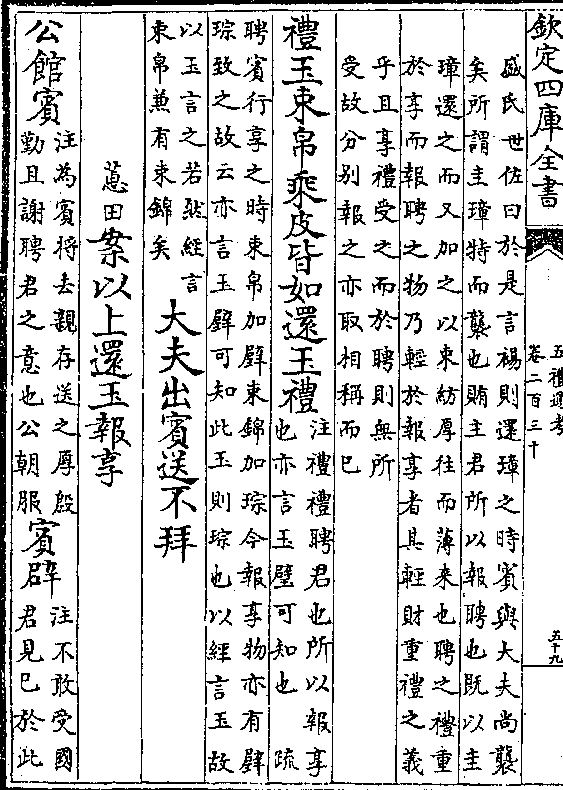 欽定四庫全書
五禮通考
卷二百三十
五十九
盛氏世佐曰於是言裼則還璋之時賓與大夫尚襲
矣所謂圭璋特而襲也賄主君所以報聘也既以圭
璋還之而又加之以束紡厚往而薄來也聘之禮重
於享而報聘之物乃輕於報享者其輕財重禮之義
乎且享禮受之而於聘則無所
受故分别報之亦取相稱而已
禮玉束帛乘皮皆如還玉禮
注禮禮聘君也所以報享
也亦言玉璧可知也 疏
聘賓行享之時束帛加璧束錦加琮今報享物亦有璧
琮致之故云亦言玉璧可知此玉則琮也以經言玉故
以玉言之若然經言
束帛兼有束錦矣
大夫出賓送不拜
蕙田案以上還玉報享
公館賓
注為賓將去親存送之厚殷
勤且謝聘君之意也公朝服
賓辟
注不敢受國
君見己於此